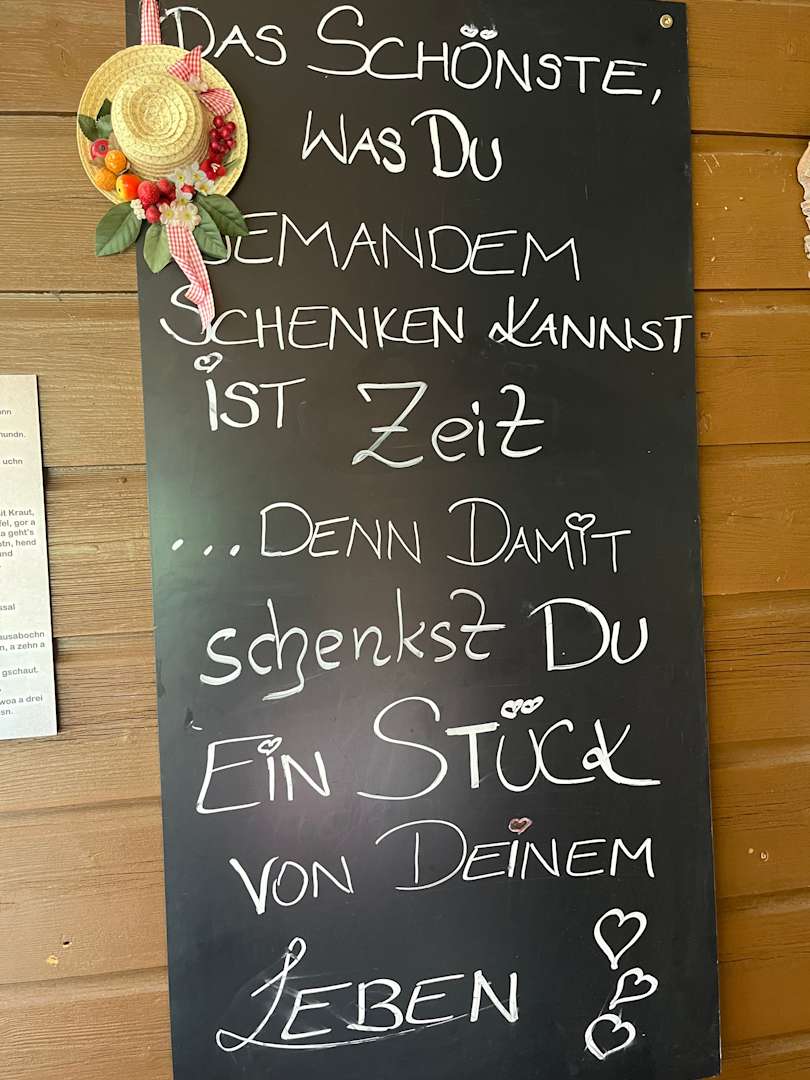 DAS SCHÖNSTE,
WAS DU
JEMANDEM
SCHENKEN KANNST
IST Zeit
...DENN DAMIT
schenkst DU
EIN STÜCK
VON DEINEM
LEBEN
hundn.
uchn
it Kraut,
gor a
a geht's
hend
und
ausabochn
a zehn a
gschaut.
woa a drei